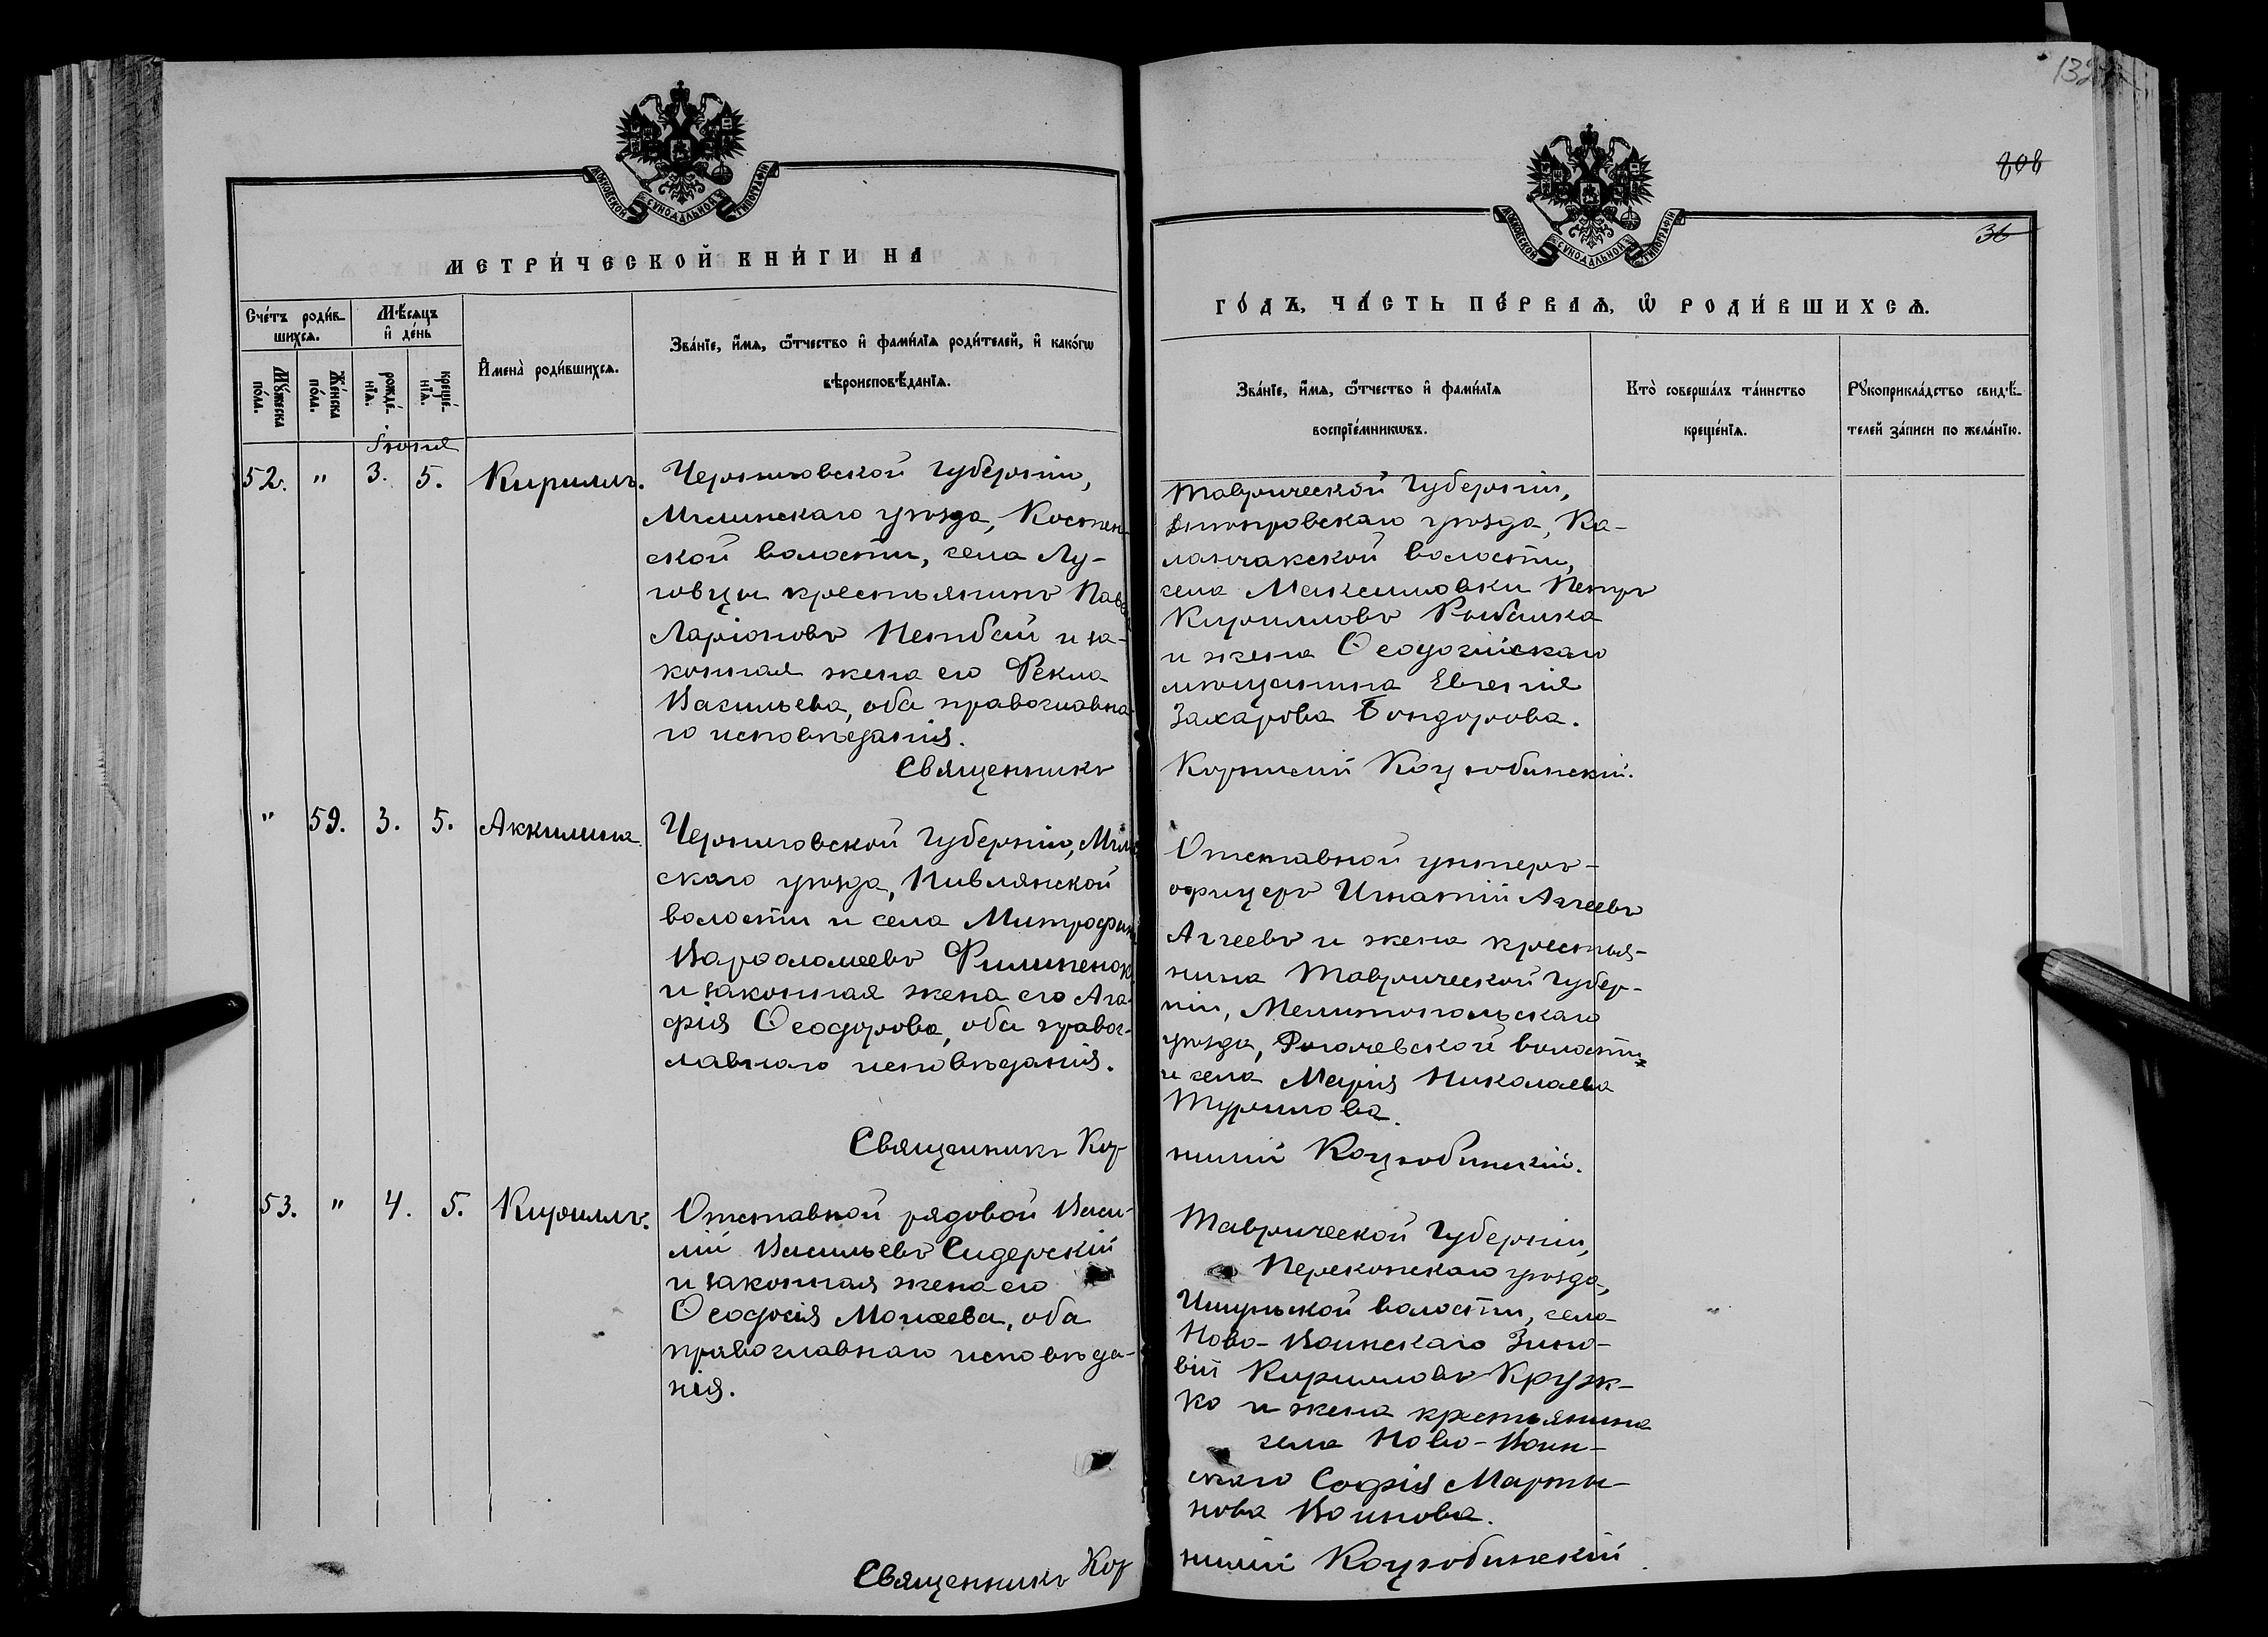 132
808
36
МОСКОВСКОЙ СѴНОДАЛЬНОЙ ТИПОГРАФІИ
МЕТРИ́ЧЕСКОЙ КНИ́ГИ НА
Сче́тъ роди́в-
шихсѧ.
Мѣ́сѧцъ
и҆ де́нь
И҆мена̀ роди́вшихсѧ.
Зва́нїе, и҆́мѧ, ѻ҆́тчество и҆ фами́лїѧ роди́телей, и҆ како́гѡ
вѣроисповѣ́данїѧ.
Мꙋ́жеска
по́ла.
Же́нска
по́ла.
рожде́-
нїѧ.
креще́-
нїѧ.
Іюня
52. " 3. 5. Кириллъ.
Черниговской губерніи,
Мглинскаго уѣзда, Костен
ской волости, села Лу-
говцы крестьянинъ Паве
Ларіоновъ Пенбай и за-
конная жена его Фекла
Васильева, оба православна
го исповѣданія.
Священникъ
" 59. 3. 5. Аккилина.
Черниговской губерніи, Мгли
скаго уѣзда, Нивлянской
волости и села Митрофан
Варѳоломеевъ Филипенок
и законная жена его Ага-
фія Ѳеодорова, оба правос-
лавнаго исповѣданія.
Священникъ Кор
53. " 4. 5. Кириллъ.
Отставной рядовой Васи-
лій Васильевъ Сидерскій
и законная жена его
Ѳеодосія Моисеева, оба
православнаго исповѣда-
нія.
Священникъ Кор
МОСКОВСКОЙ СѴНОДАЛЬНОЙ ТИПОГРАФІИ
ГО́ДЪ, ЧА́СТЬ ПЕ́РВАѦ, Ѡ҆ РОДИ́ВШИХСѦ.
Зва́нїе, и҆́мѧ, ѻ҆́тчество и҆ фами́лїѧ
воспрїе́мникѡвъ.
Кто̀ соверша́лъ та́инство
креще́нїѧ.
Рꙋкоприкла́дство свидѣ́-
телей за́писи по жела́нїю.
Таврической губерніи,
Днепровскаго уѣзда, Ка-
ланчакской волости,
села Максимовки Петръ
Кирилловъ Рыбалка
и жена Ѳеодосійскаго
мѣщанина Евгенія
Захарова Бондорова.
Корнилій Коцюбинскій.
Отставной унтеръ-
офицеръ Игнатій Аггеевъ
Аггеевъ и жена крестья-
нина Таврической губер-
ніи, Мелитопольскаго
уѣзда, Рогачевской волости
и села Марія Николаева
Турилова.
нилій Коцюбинскій.
Таврической губерніи,
Перекопскаго уѣзда,
Ишуньской волости, села
Ново-Воинскаго Зино-
вій Кирилловъ Круж-
ко и жена крестьянина
села Ново-Воин-
скаго Софія Марты-
нова Воинова.
нилій Коцюбинскій